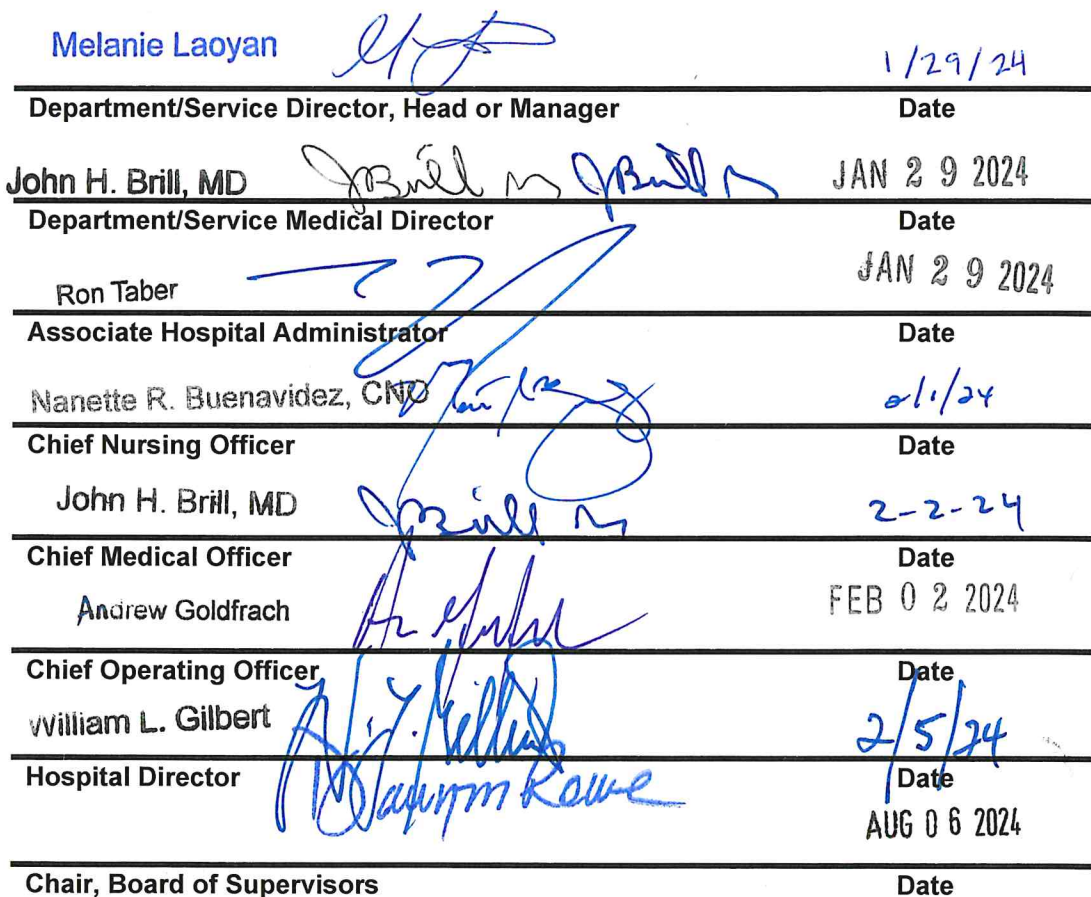 Melanie Laoyan 1/29/24
Department/Service Director, Head or Manager Date
John H. Brill, MD JBrill JBrill JAN 29 2024
Department/Service Medical Director Date
Ron Taber JAN 29 2024
Associate Hospital Administrator Date
Nanette R. Buenavidez, CNO 2/1/24
Chief Nursing Officer Date
John H. Brill, MD JBrill 2-2-24
Chief Medical Officer Date
Andrew Goldfrach FEB 02 2024
Chief Operating Officer Date
William L. Gilbert 2/5/24
Hospital Director Date
Rowe AUG 06 2024
Chair, Board of Supervisors Date